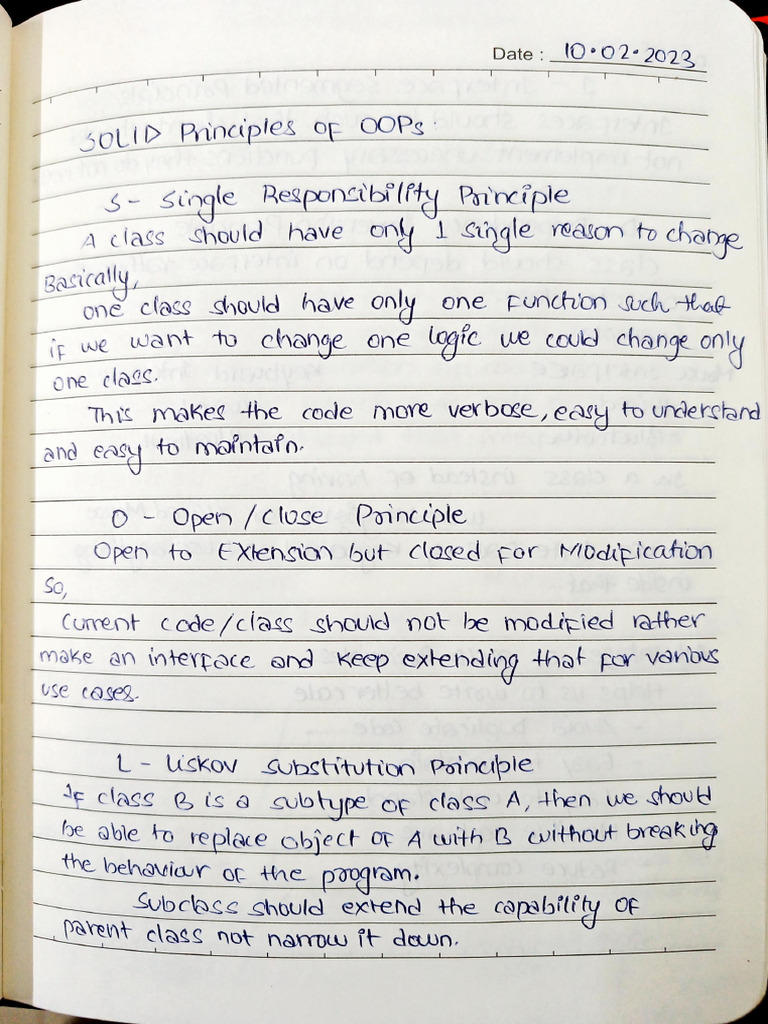 Date : 10.02.2023
SOLID Principles of OOPs
S - Single Responsibility Principle
A class should have only 1 single reason to change
Basically,
one class should have only one function such that
if we want to change one logic we could change only
one class.
This makes the code more verbose, easy to understand
and easy to maintain.
O - Open / Close Principle
Open to Extension but closed for Modification
So,
Current code/class should not be modified rather
make an interface and keep extending that for various
use cases.
L - Liskov Substitution Principle
If class B is a subtype of class A, then we should
be able to replace object of A with B without breaking
the behaviour of the program.
Subclass should extend the capability of
parent class not narrow it down.